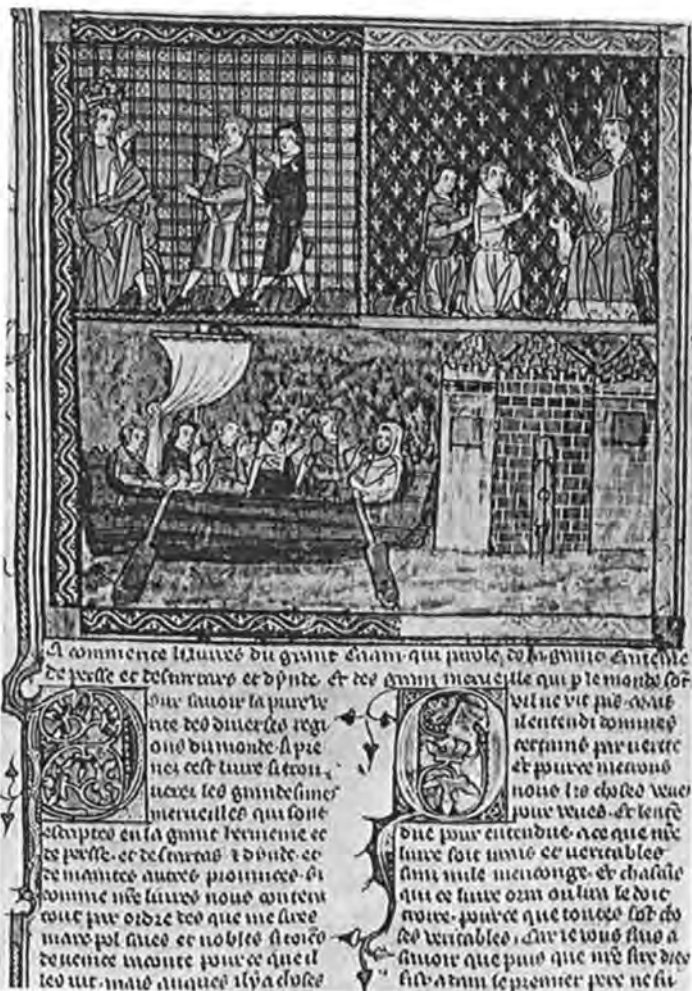 Ci commence li liures du grant Caam qui parole de la grant Ermenie
de persse et des tartars et dynde. Et des grans merueille qui p le monde sōt
Pour sauoir la pure ve
rite des diuerses regi
ons du monde. si pre
nes cest liure si trou
ueres les grandesimes
merueilles qui sont
escriptes en la grant hermenie et
de persse. et des tartars & dynde. et
de maintes autres prouinces. si
comme nre liures nous contera
tout par ordre des que me sires
marc pol saies et nobles citoiēs
de uenice raconte pour ce que il
les uit. mais auques il y a choses
Quil ne vit pas. mais
il entendi dommes
certains par uerite
et pour ce metrons
nous les choses veues
pour veues. et lenten
due pour entendue. a ce que nre
liure soit urais et ueritables
sans nule mencogne. et chascūs
qui ce liure orra ou lira le doit
croire. pour ce que toutes sōt cho
ses veritables. Car ie vous fais a
sauoir que puis que nre sire diex
fist adam le premier pere ne fu